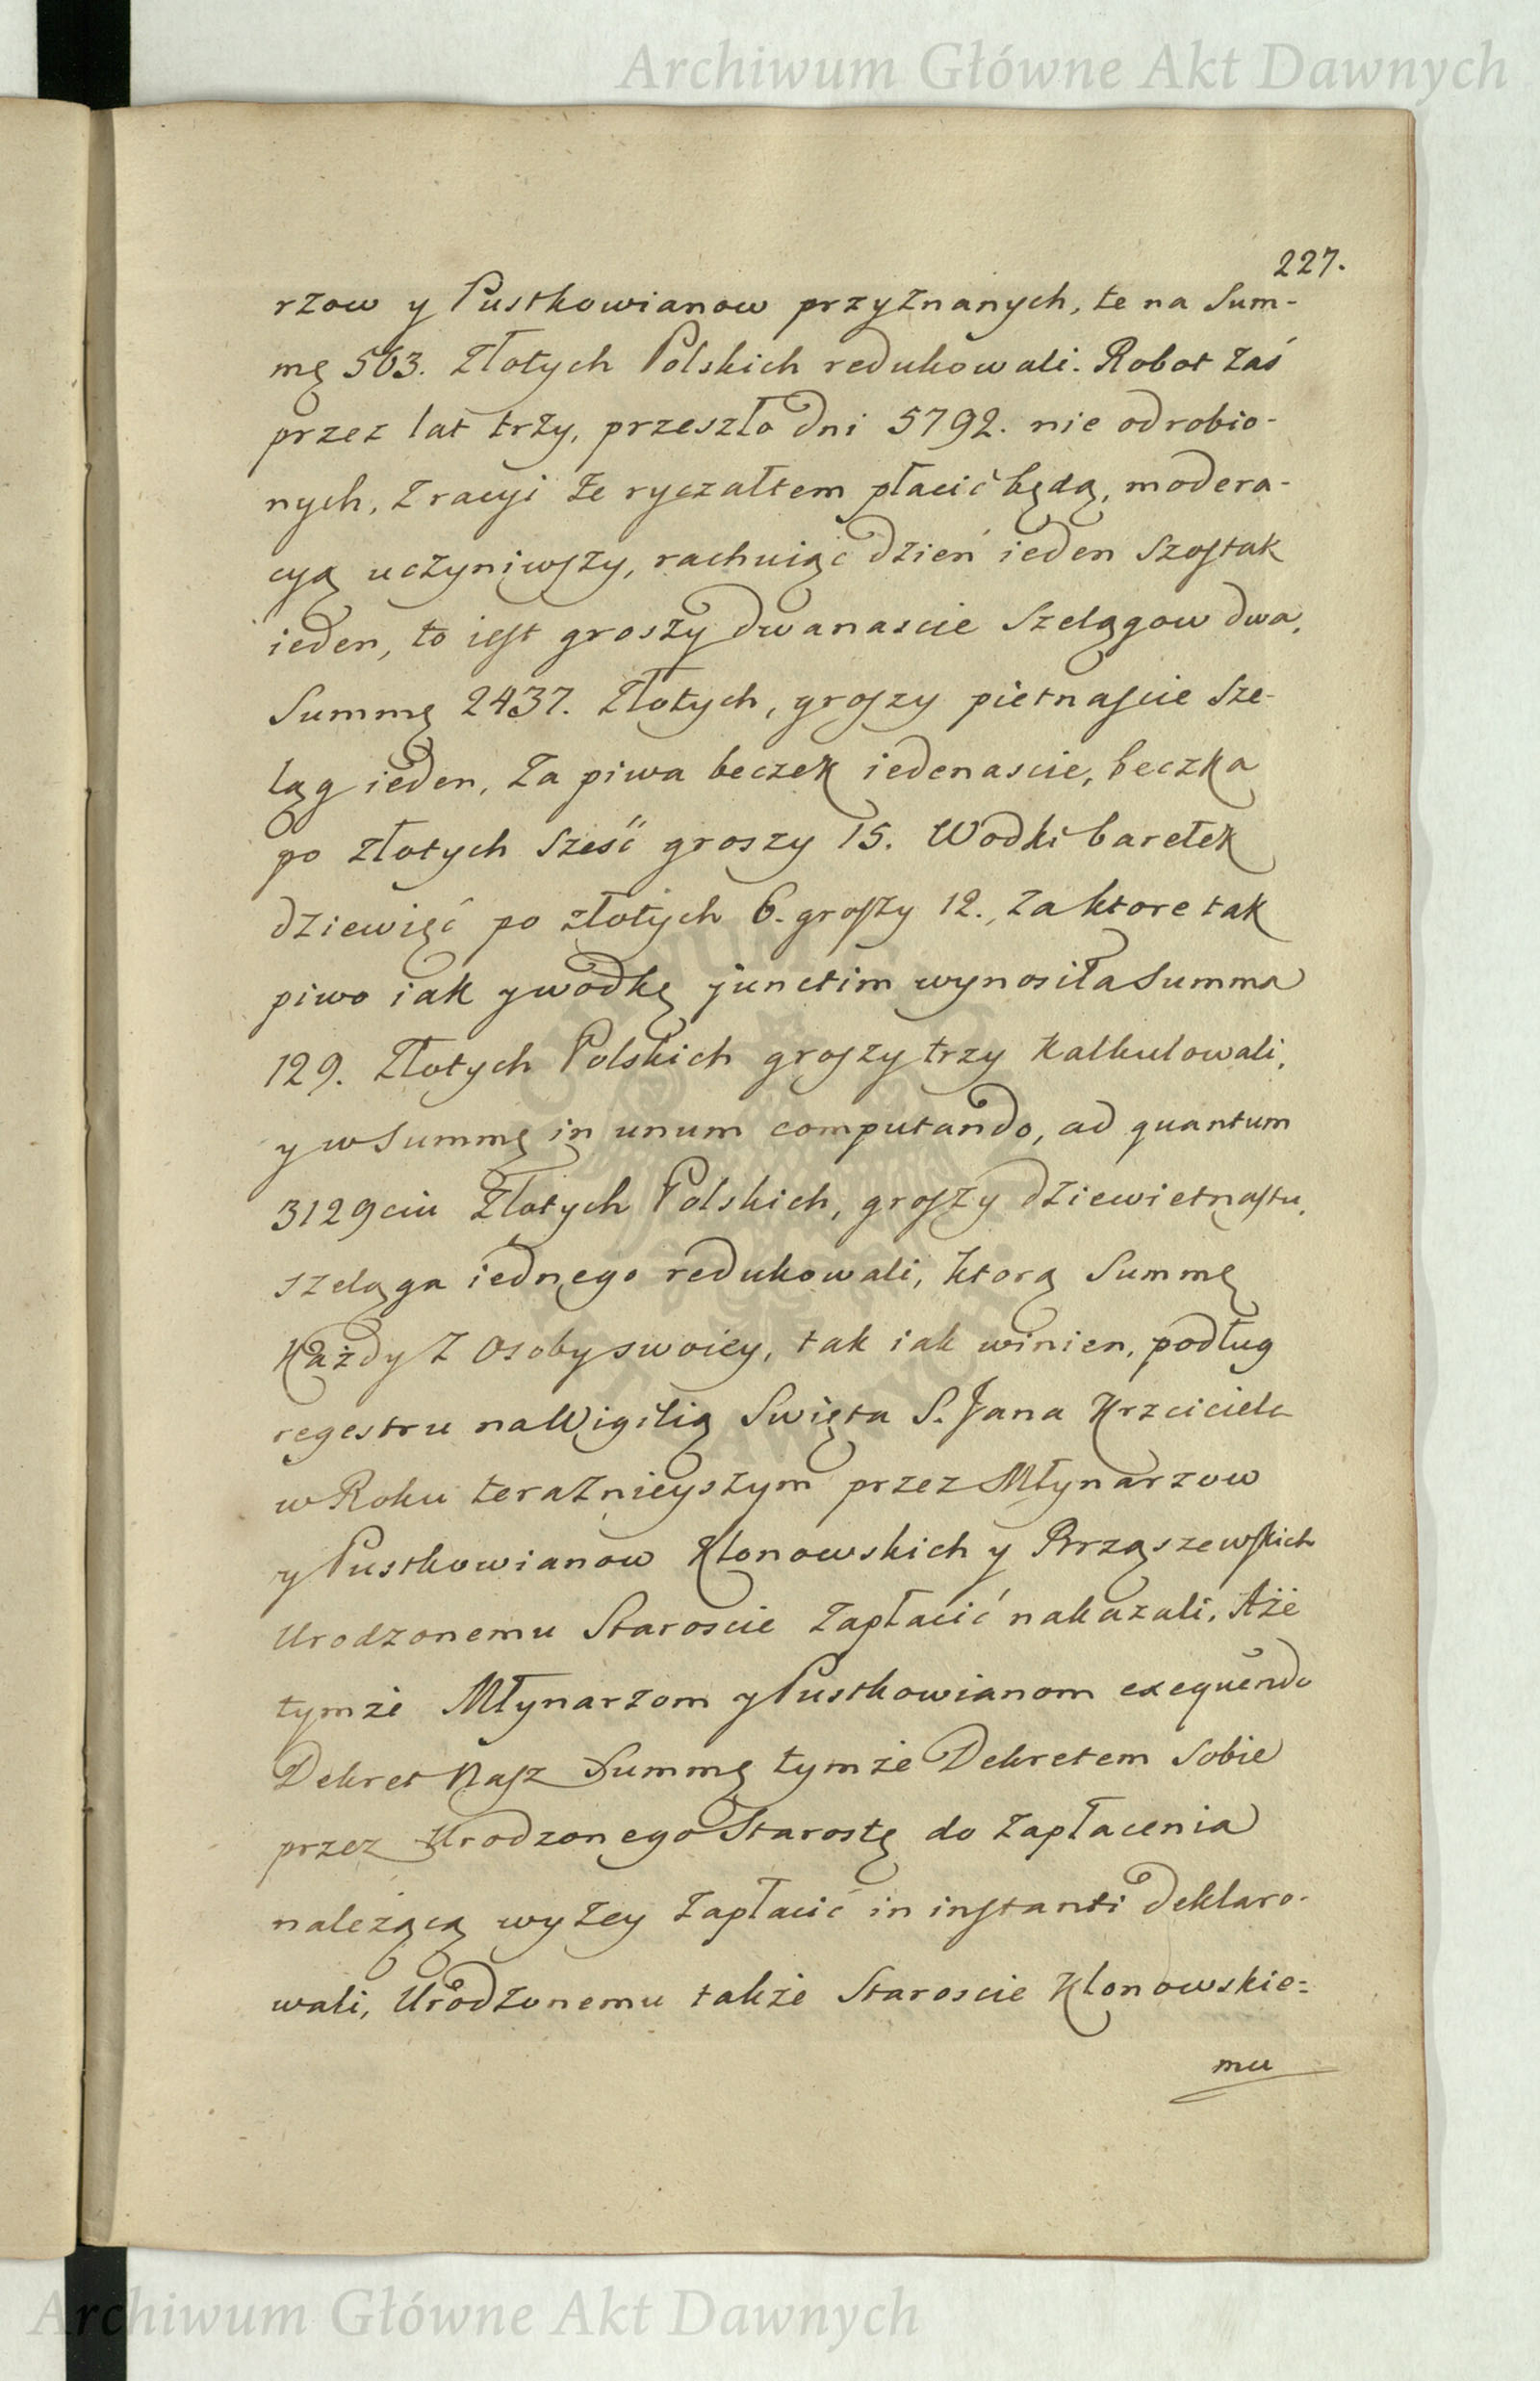 Archiwum Główne Akt Dawnych
227.
rzow y Pustkowianow przyznanych, te na Sum-
mę 563. Złotych Polskich redukowali. Robot zaś
przez lat trzy, przeszło dni 5792. nie odrobio-
nych, z racyi że ryczałtem płacić będą, modera-
cyą uczyniwszy, rachuiąc dzień ieden Szostak
ieden, to iest groszy dwanascie Szelągow dwa,
Summę 2437. Złotych, groszy pietnascie Sze-
ląg ieden, Za piwa beczek iedenascie, beczka
po złotych sześć groszy 15. Wodki barełek
dziewięć po złotych 6. groszy 12., za ktore tak
piwo iak y wodkę junctim wynosiła Summa
129. Złotych Polskich groszy trzy kalkulowali,
y w Summę in unum computando, ad quantum
3129ciu Złotych Polskich, groszy dziewietnastu,
szeląga iednego redukowali, ktorą Summę
każdy z osoby swoiey, tak iak winien, podług
regestru na Wigilią Swięta S. Jana Krzciciela
w Roku teraznieyszym przez Młynarzow
y Pustkowianow Klonowskich y Brząszewskich
Urodzonemu Staroscie zapłacić nakazali. Aże
tymże Młynarzom y Pustkowianom exequendo
Dekret Nasz Summę tymże Dekretem sobie
przez Urodzonego Starostę do zapłacenia
należącą wyżey zapłacić in instanti deklaro-
wali, Urodzonemu także Staroscie Klonowskie-
mu
Archiwum Główne Akt Dawnych